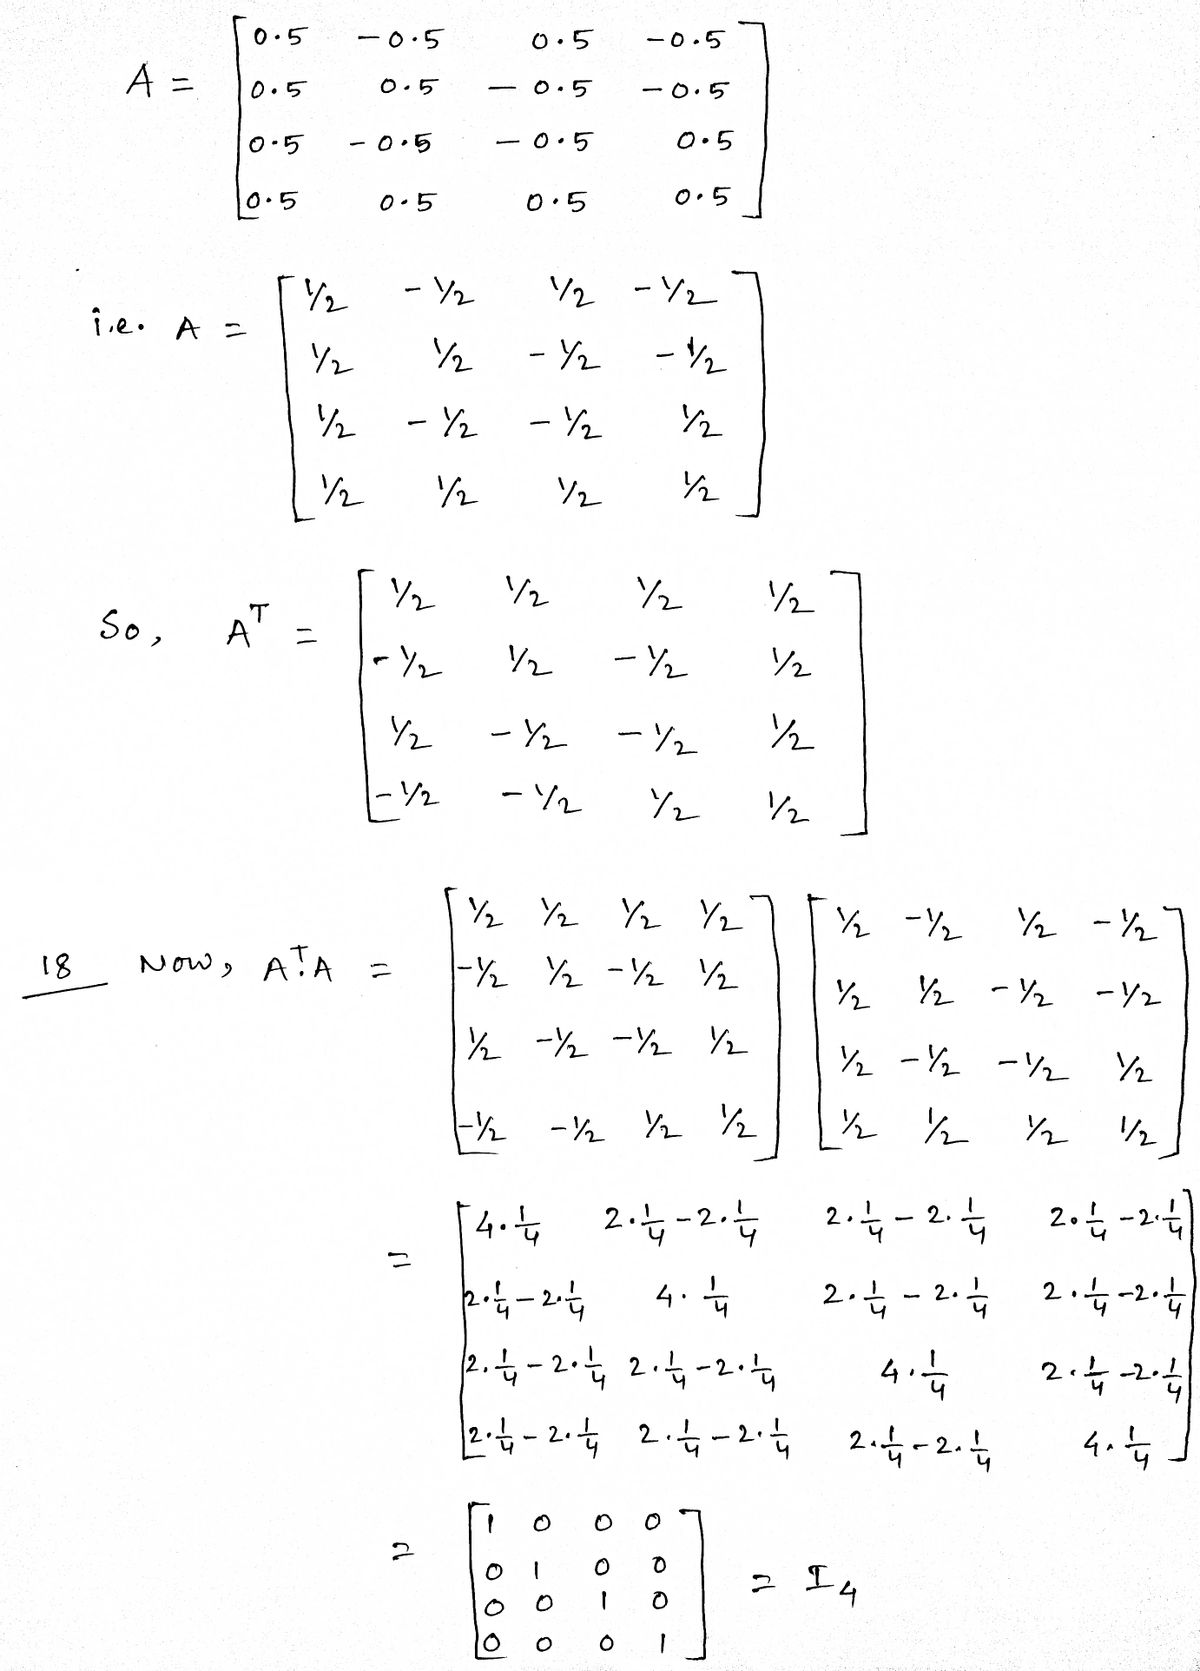 A = [ 0.5 -0.5 0.5 -0.5
0.5 0.5 -0.5 -0.5
0.5 -0.5 -0.5 0.5
0.5 0.5 0.5 0.5 ]
i.e. A = [ 1/2 -1/2 1/2 -1/2
1/2 1/2 -1/2 -1/2
1/2 -1/2 -1/2 1/2
1/2 1/2 1/2 1/2 ]
So, Aᵀ = [ 1/2 1/2 1/2 1/2
-1/2 1/2 -1/2 1/2
1/2 -1/2 -1/2 1/2
-1/2 -1/2 1/2 1/2 ]
18 Now, Aᵀ.A = [ 1/2 1/2 1/2 1/2 ] [ 1/2 -1/2 1/2 -1/2 ]
-1/2 1/2 -1/2 1/2 1/2 1/2 -1/2 -1/2
1/2 -1/2 -1/2 1/2 1/2 -1/2 -1/2 1/2
-1/2 -1/2 1/2 1/2 1/2 1/2 1/2 1/2
= [ 4·1/4 2·1/4-2·1/4 2·1/4-2·1/4 2·1/4-2·1/4
2·1/4-2·1/4 4·1/4 2·1/4-2·1/4 2·1/4-2·1/4
2·1/4-2·1/4 2·1/4-2·1/4 4·1/4 2·1/4-2·1/4
2·1/4-2·1/4 2·1/4-2·1/4 2·1/4-2·1/4 4·1/4 ]
= [ 1 0 0 0
0 1 0 0
0 0 1 0
0 0 0 1 ] = I₄